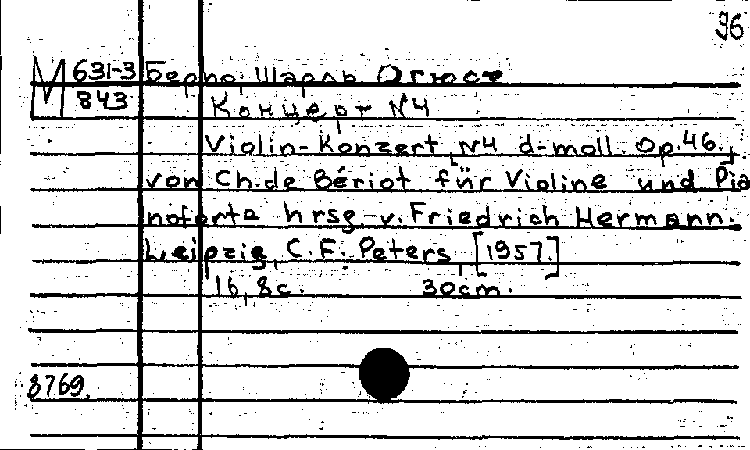 96
М 631-3 Берио, Шарль Огюст
843 Концерт №4
Violin-Konzert №4 d-moll. Op.46.,
von Ch.de Bériot für Violine und Pia
noforte hrsg v. Friedrich Hermann.
Leipzig, C.F. Peters, [1957.]
16, 8c. 30cm.
8769.